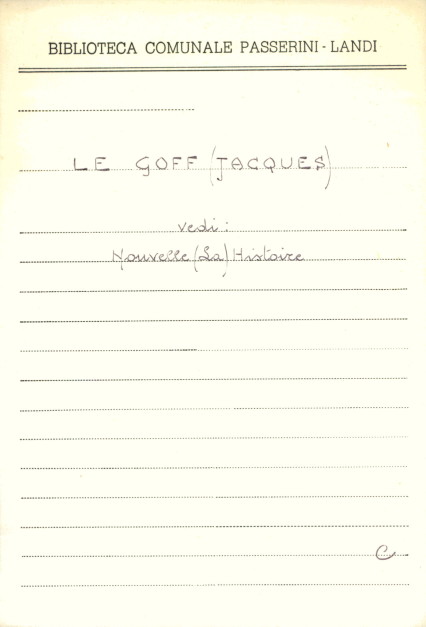 BIBLIOTECA COMUNALE PASSERINI - LANDI
LE GOFF (JACQUES)
vedi:
Nouvelle (La) Histoire
C